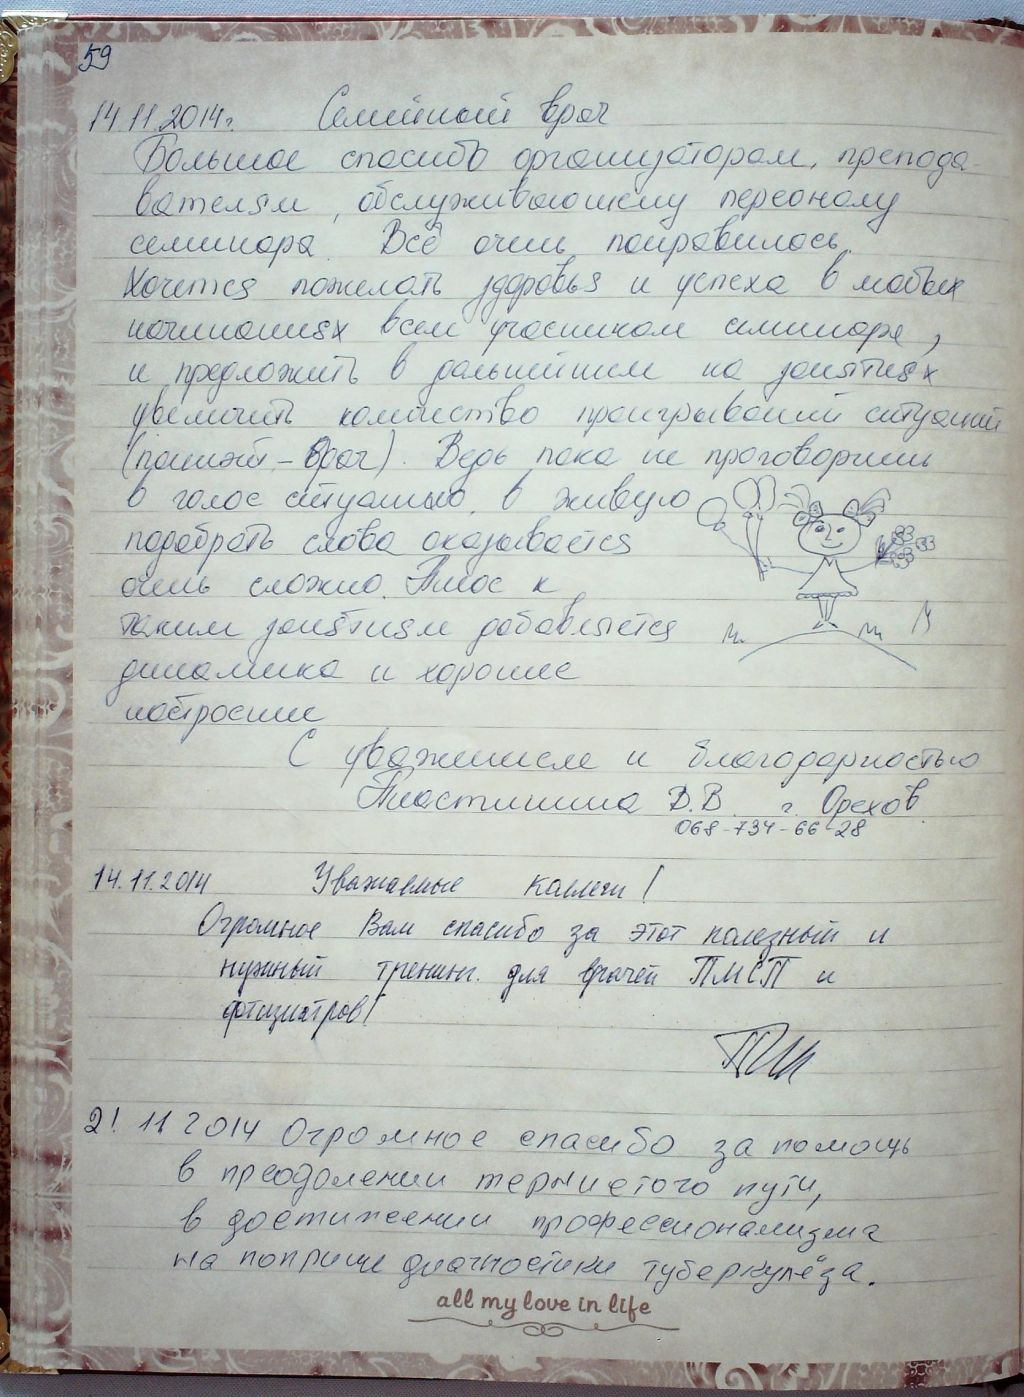 59
14.11.2014г. Семейный врач
Большое спасибо организаторам, препода-
вателям, обслуживающему персоналу
семинара. Всё очень понравилось.
Хочется пожелать здоровья и успеха в любых
начинаниях всем участникам семинара,
и предложить в дальнейшем на занятиях
увеличить количество проигрываний ситуаций
(пациент - врач). Ведь пока не проговоришь
в голос ситуацию, в живую
подобрать слова оказывается
очень сложно. Плюс к
таким занятиям добавляется
динамика и хорошее
настроение
С уважением и благодарностью
Пластинина В.В. г. Орехов.
068-734-66-28
14.11.2014 Уважаемые коллеги!
Огромное Вам спасибо за этот полезный и
нужный тренинг для врачей ПМСП и
фтизиатров!
21.11.2014 Огромное спасибо за помощь
в преодолении тернистого пути,
в достижении профессионализма
на поприще диагностики туберкулёза.
all my love in life